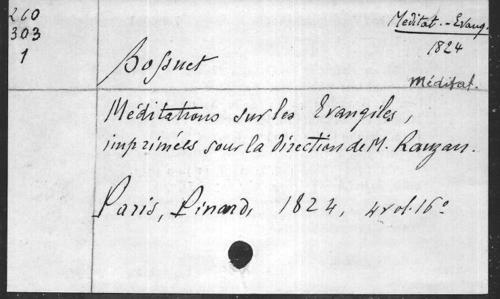 260
303
1
Méditat.-Evang.
1824
Méditat.
Bossuet
Méditations sur les Evangiles,
imprimées sour la direction de M. Rauzan.
Paris, Pinard, 1824, 4 vol. 16º